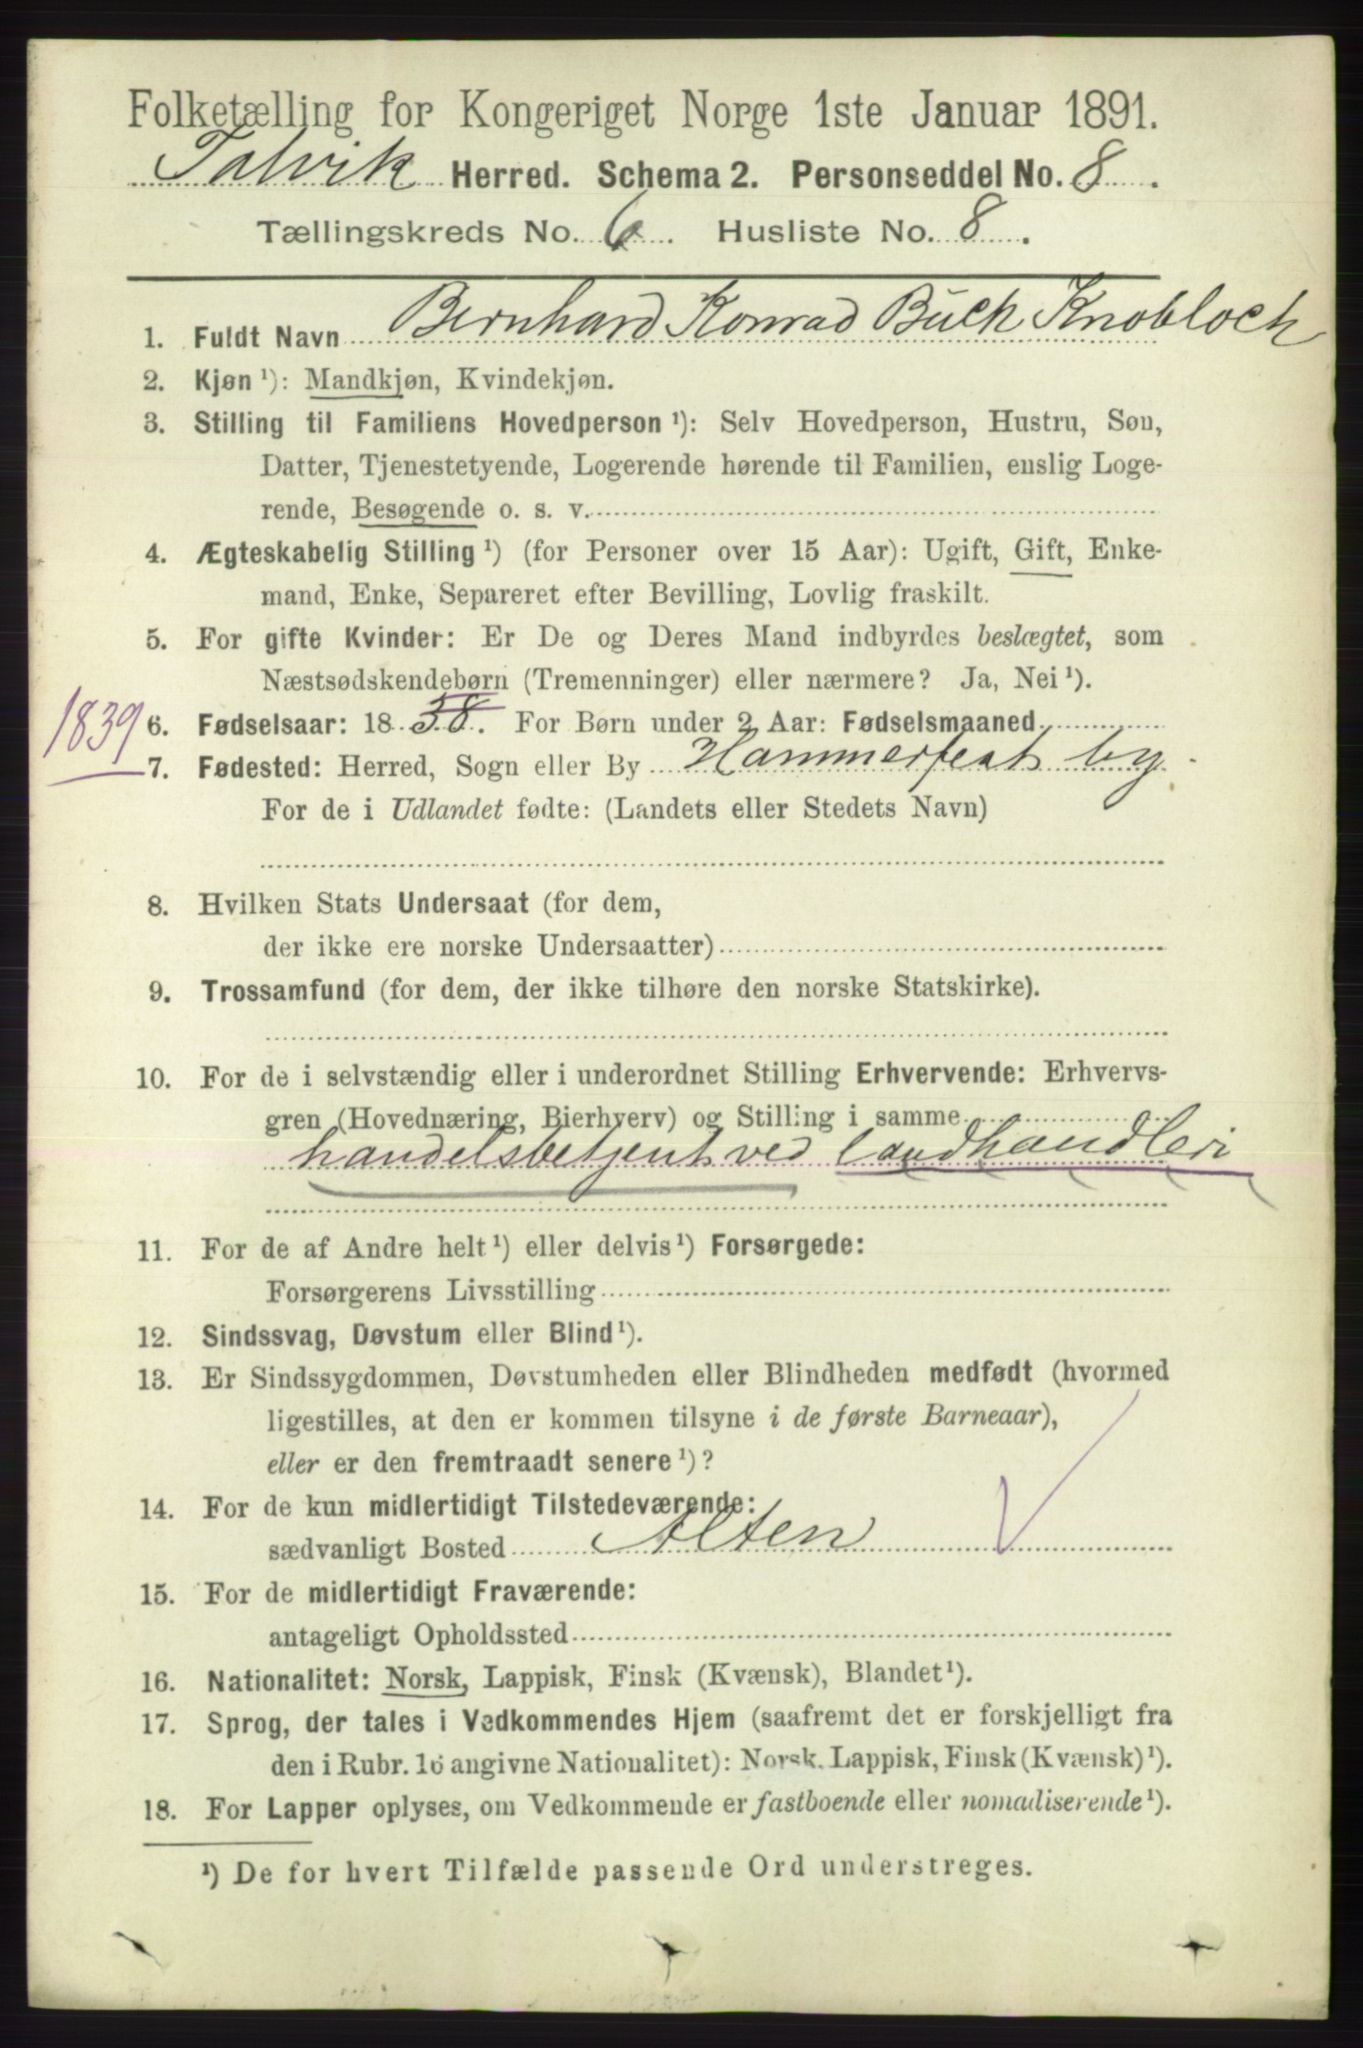 Folketælling for Kongeriget Norge 1ste Januar 1891.
Talvik Herred. Schema 2. Personseddel No. 8.
Tællingskreds No. 6. Husliste No. 8.
1. Fuldt Navn Bernhard Konrad Buch Knobloch
2. Kjøn¹): Mandkjøn, Kvindekjøn.
3. Stilling til Familiens Hovedperson¹): Selv Hovedperson, Hustru, Søn,
Datter, Tjenestetyende, Logerende hørende til Familien, enslig Loge-
rende, Besøgende o. s. v.
4. Ægteskabelig Stilling¹) (for Personer over 15 Aar): Ugift, Gift, Enke-
mand, Enke, Separeret efter Bevilling, Lovlig fraskilt.
5. For gifte Kvinder: Er De og Deres Mand indbyrdes beslægtet, som
Næstsødskendebørn (Tremenninger) eller nærmere? Ja, Nei¹).
1839 6. Fødselsaar: 18 58. For Børn under 2 Aar: Fødselsmaaned
7. Fødested: Herred, Sogn eller By Hammerfest by
For de i Udlandet fødte: (Landets eller Stedets Navn)
8. Hvilken Stats Undersaat (for dem,
der ikke ere norske Undersaatter)
9. Trossamfund (for dem, der ikke tilhøre den norske Statskirke).
10. For de i selvstændig eller i underordnet Stilling Erhvervende: Erhvervs-
gren (Hovednæring, Bierhverv) og Stilling i samme
handelsbetjent ved landhandleri
11. For de af Andre helt¹) eller delvis¹) Forsørgede:
Forsørgerens Livsstilling
12. Sindssvag, Døvstum eller Blind¹).
13. Er Sindssygdommen, Døvstumheden eller Blindheden medfødt (hvormed
ligestilles, at den er kommen tilsyne i de første Barneaar),
eller er den fremtraadt senere¹)?
14. For de kun midlertidigt Tilstedeværende:
sædvanligt Bosted Alten
15. For de midlertidigt Fraværende:
antageligt Opholdssted
16. Nationalitet: Norsk, Lappisk, Finsk (Kvænsk), Blandet¹).
17. Sprog, der tales i Vedkommendes Hjem (saafremt det er forskjelligt fra
den i Rubr. 16 angivne Nationalitet): Norsk, Lappisk, Finsk (Kvænsk)¹).
18. For Lapper oplyses, om Vedkommende er fastboende eller nomadiserende¹).
¹) De for hvert Tilfælde passende Ord understreges.